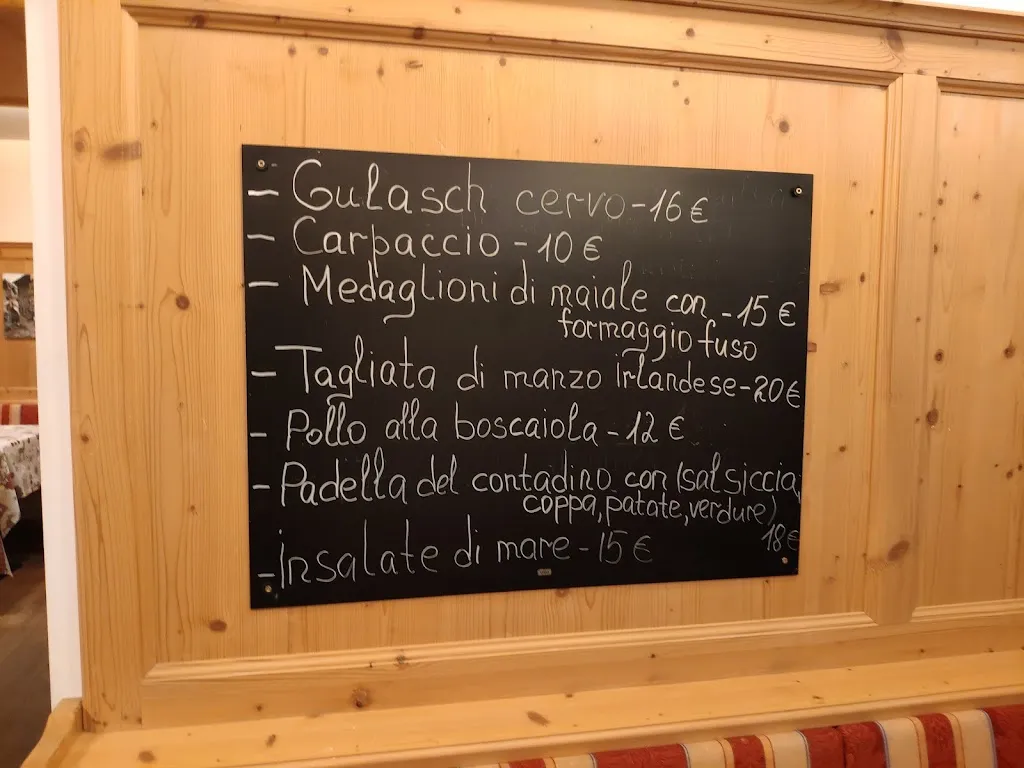 - Gulasch cervo - 16 €
- Carpaccio - 10 €
- Medaglioni di maiale con - 15 €
formaggio fuso
- Tagliata di manzo irlandese - 20 €
- Pollo alla boscaiola - 12 €
- Padella del contadino con (salsiccia,
coppa, patate, verdure)
18€
- insalate di mare - 15 €